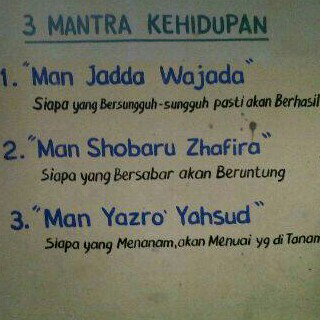 3 MANTRA KEHIDUPAN
1. "Man Jadda Wajada"
Siapa yang Bersungguh-sungguh pasti akan Berhasil
2. "Man Shobaru Zhafira"
Siapa yang Bersabar akan Beruntung
3. "Man Yazro' Yahsud"
Siapa yang Menanam, akan Menuai yg di Tanam